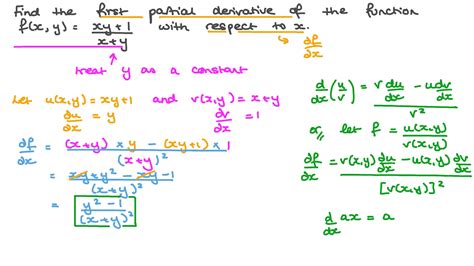 Find the first partial derivative of the function
f(x, y) = (xy+1)/(x+y) with respect to x.
∂f/∂x
treat y as a constant
Let u(x,y) = xy+1 and v(x,y) = x+y
∂u/∂x = y ∂v/∂x = 1
∂f/∂x = ((x+y) × y − (xy+1) × 1)/(x+y)²
= (xy + y² − xy − 1)/(x+y)²
= (y² − 1)/(x+y)²
d/dx (u/v) = (v du/dx − u dv/dx)/v²
or, let f = u(x,y)/v(x,y)
∂f/∂x = (v(x,y) ∂u/∂x − u(x,y) ∂v/∂x)/[v(x,y)]²
d/dx ax = a